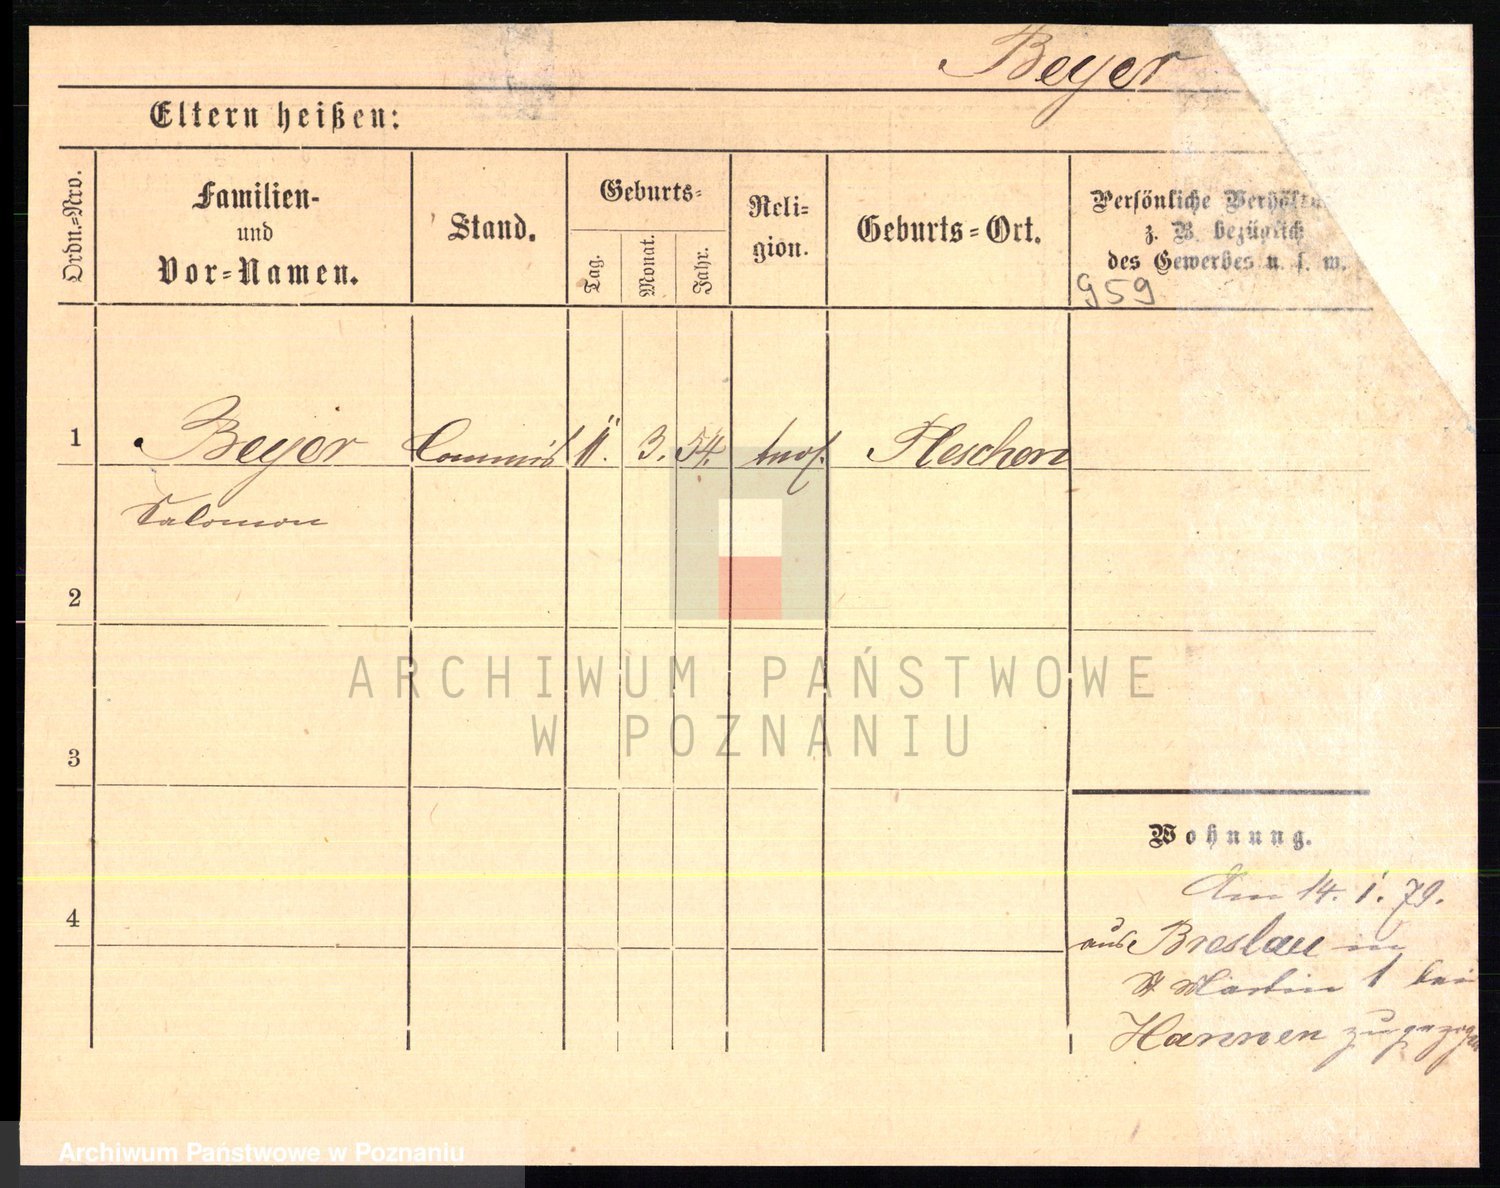 Beyer
Eltern heißen:
Ordn.=Nro.
Familien-
und
Vor=Namen.
Stand.
Geburts=
Tag.
Monat.
Jahr.
Reli=
gion.
Geburts=Ort.
Persönliche
z. B. bezüglich
des Gewerbes u. s. w.
959
1
Beyer
Commis
11. 3. 54.
mos.
Pleschen
Salomon
2
3
4
Wohnung.
Am 14. 1. 79.
aus Breslau in
St Martin 1 bei
Hannen zugezogen
ARCHIWUM PAŃSTWOWE
W POZNANIU
Archiwum Państwowe w Poznaniu